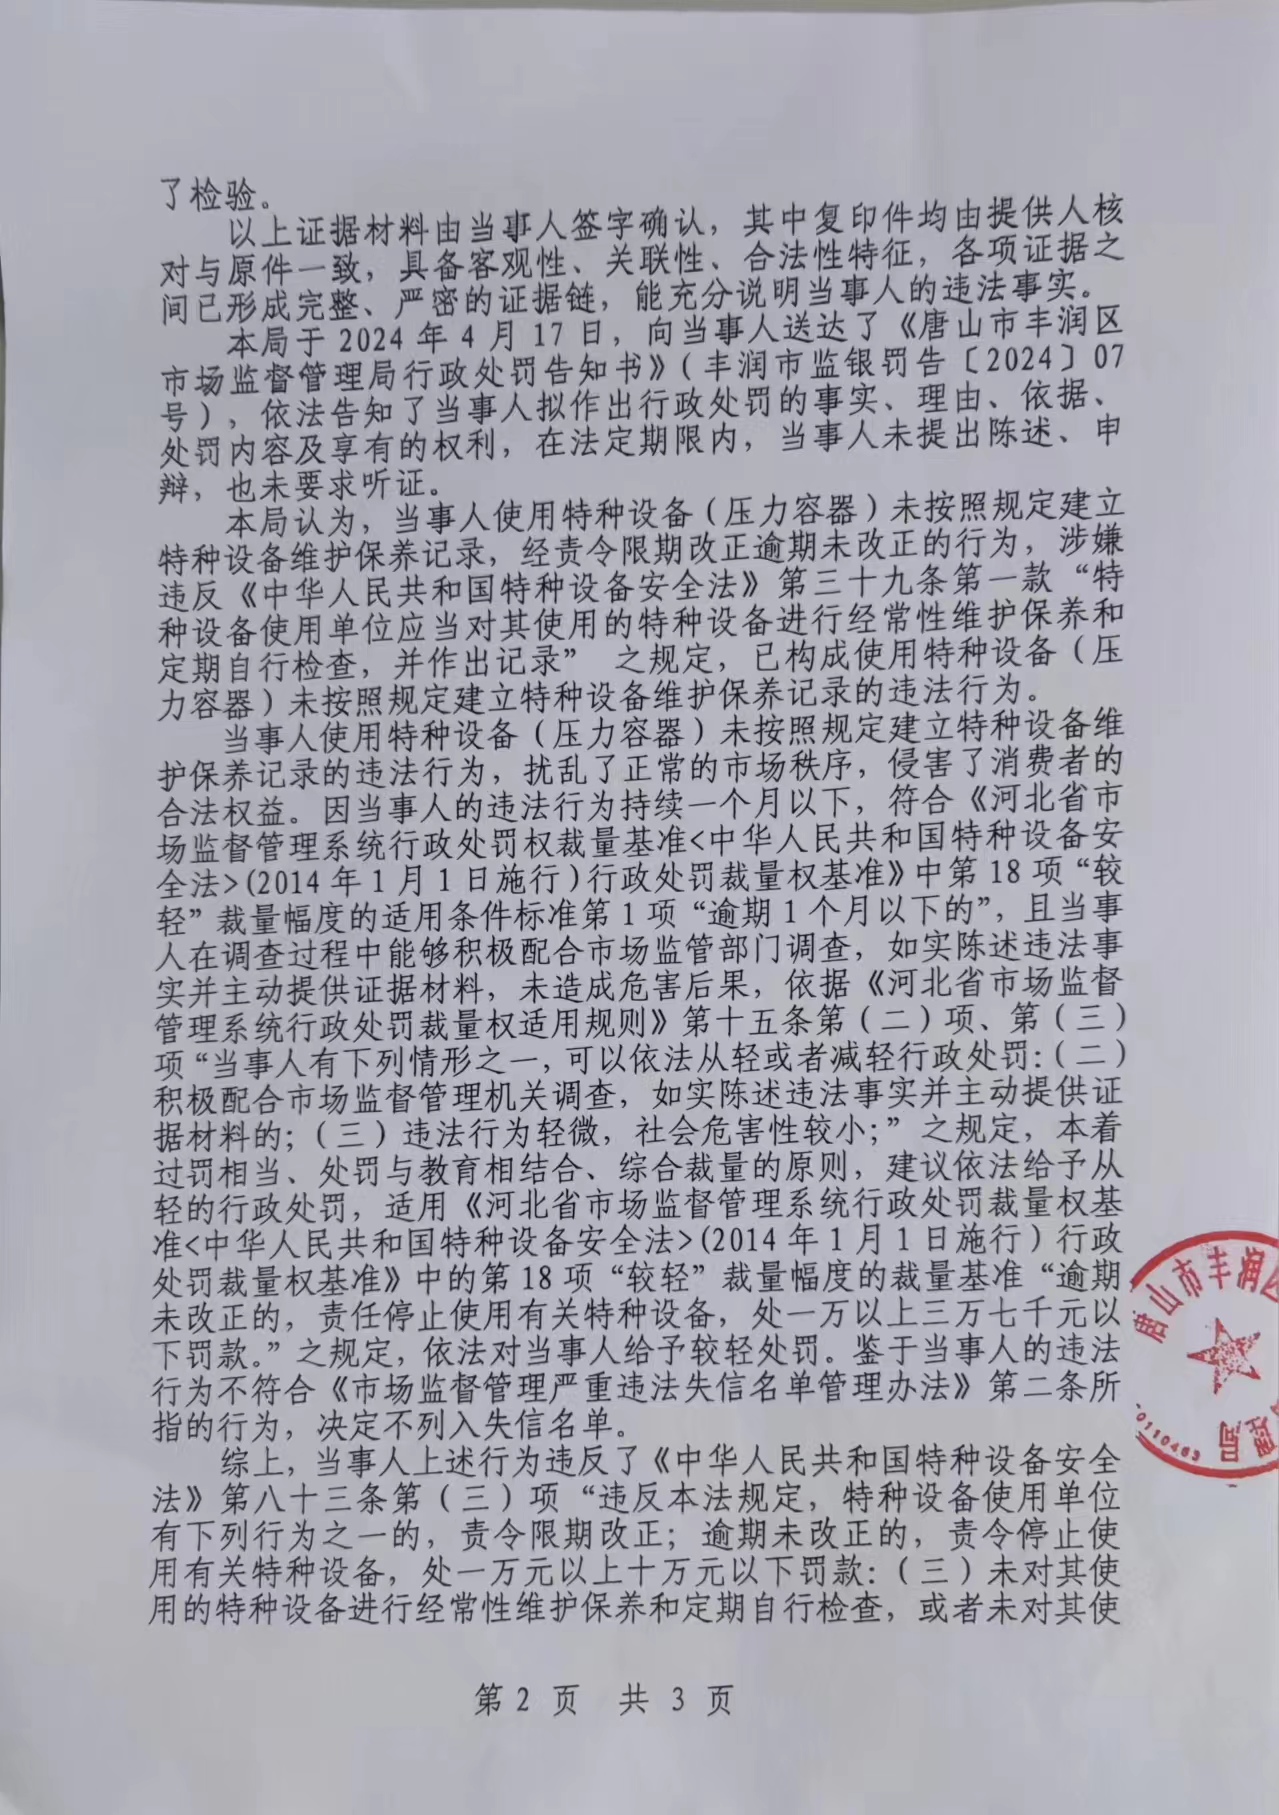 了检验。
以上证据材料由当事人签字确认，其中复印件均由提供人核
对与原件一致，具备客观性、关联性、合法性特征，各项证据之
间已形成完整、严密的证据链，能充分说明当事人的违法事实。
本局于 2024 年 4 月 17 日，向当事人送达了《唐山市丰润区
市场监督管理局行政处罚告知书》（丰润市监银罚告〔2024〕07
号），依法告知了当事人拟作出行政处罚的事实、理由、依据、
处罚内容及享有的权利，在法定期限内，当事人未提出陈述、申
辩，也未要求听证。
本局认为，当事人使用特种设备（压力容器）未按照规定建立
特种设备维护保养记录，经责令限期改正逾期未改正的行为，涉嫌
违反《中华人民共和国特种设备安全法》第三十九条第一款“特
种设备使用单位应当对其使用的特种设备进行经常性维护保养和
定期自行检查，并作出记录” 之规定，已构成使用特种设备（压
力容器）未按照规定建立特种设备维护保养记录的违法行为。
当事人使用特种设备（压力容器）未按照规定建立特种设备维
护保养记录的违法行为，扰乱了正常的市场秩序，侵害了消费者的
合法权益。因当事人的违法行为持续一个月以下，符合《河北省市
场监督管理系统行政处罚权裁量基准<中华人民共和国特种设备安
全法>(2014 年 1 月 1 日施行)行政处罚裁量权基准》中第 18 项“较
轻”裁量幅度的适用条件标准第 1 项“逾期 1 个月以下的”，且当事
人在调查过程中能够积极配合市场监管部门调查，如实陈述违法事
实并主动提供证据材料，未造成危害后果，依据《河北省市场监督
管理系统行政处罚裁量权适用规则》第十五条第（二）项、第（三）
项“当事人有下列情形之一，可以依法从轻或者减轻行政处罚：（二）
积极配合市场监督管理机关调查，如实陈述违法事实并主动提供证
据材料的；（三）违法行为轻微，社会危害性较小；”之规定，本着
过罚相当、处罚与教育相结合、综合裁量的原则，建议依法给予从
轻的行政处罚，适用《河北省市场监督管理系统行政处罚裁量权基
准<中华人民共和国特种设备安全法>(2014 年 1 月 1 日施行) 行政
处罚裁量权基准》中的第 18 项“较轻”裁量幅度的裁量基准“逾期
未改正的，责任停止使用有关特种设备，处一万以上三万七千元以
下罚款。”之规定，依法对当事人给予较轻处罚。鉴于当事人的违法
行为不符合《市场监督管理严重违法失信名单管理办法》第二条所
指的行为，决定不列入失信名单。
综上，当事人上述行为违反了《中华人民共和国特种设备安全
法》第八十三条第（三）项“违反本法规定，特种设备使用单位
有下列行为之一的，责令限期改正；逾期未改正的，责令停止使
用有关特种设备，处一万元以上十万元以下罚款：（三）未对其使
用的特种设备进行经常性维护保养和定期自行检查，或者未对其使
第 2 页 共 3 页
唐山市丰润区
理局
0110463